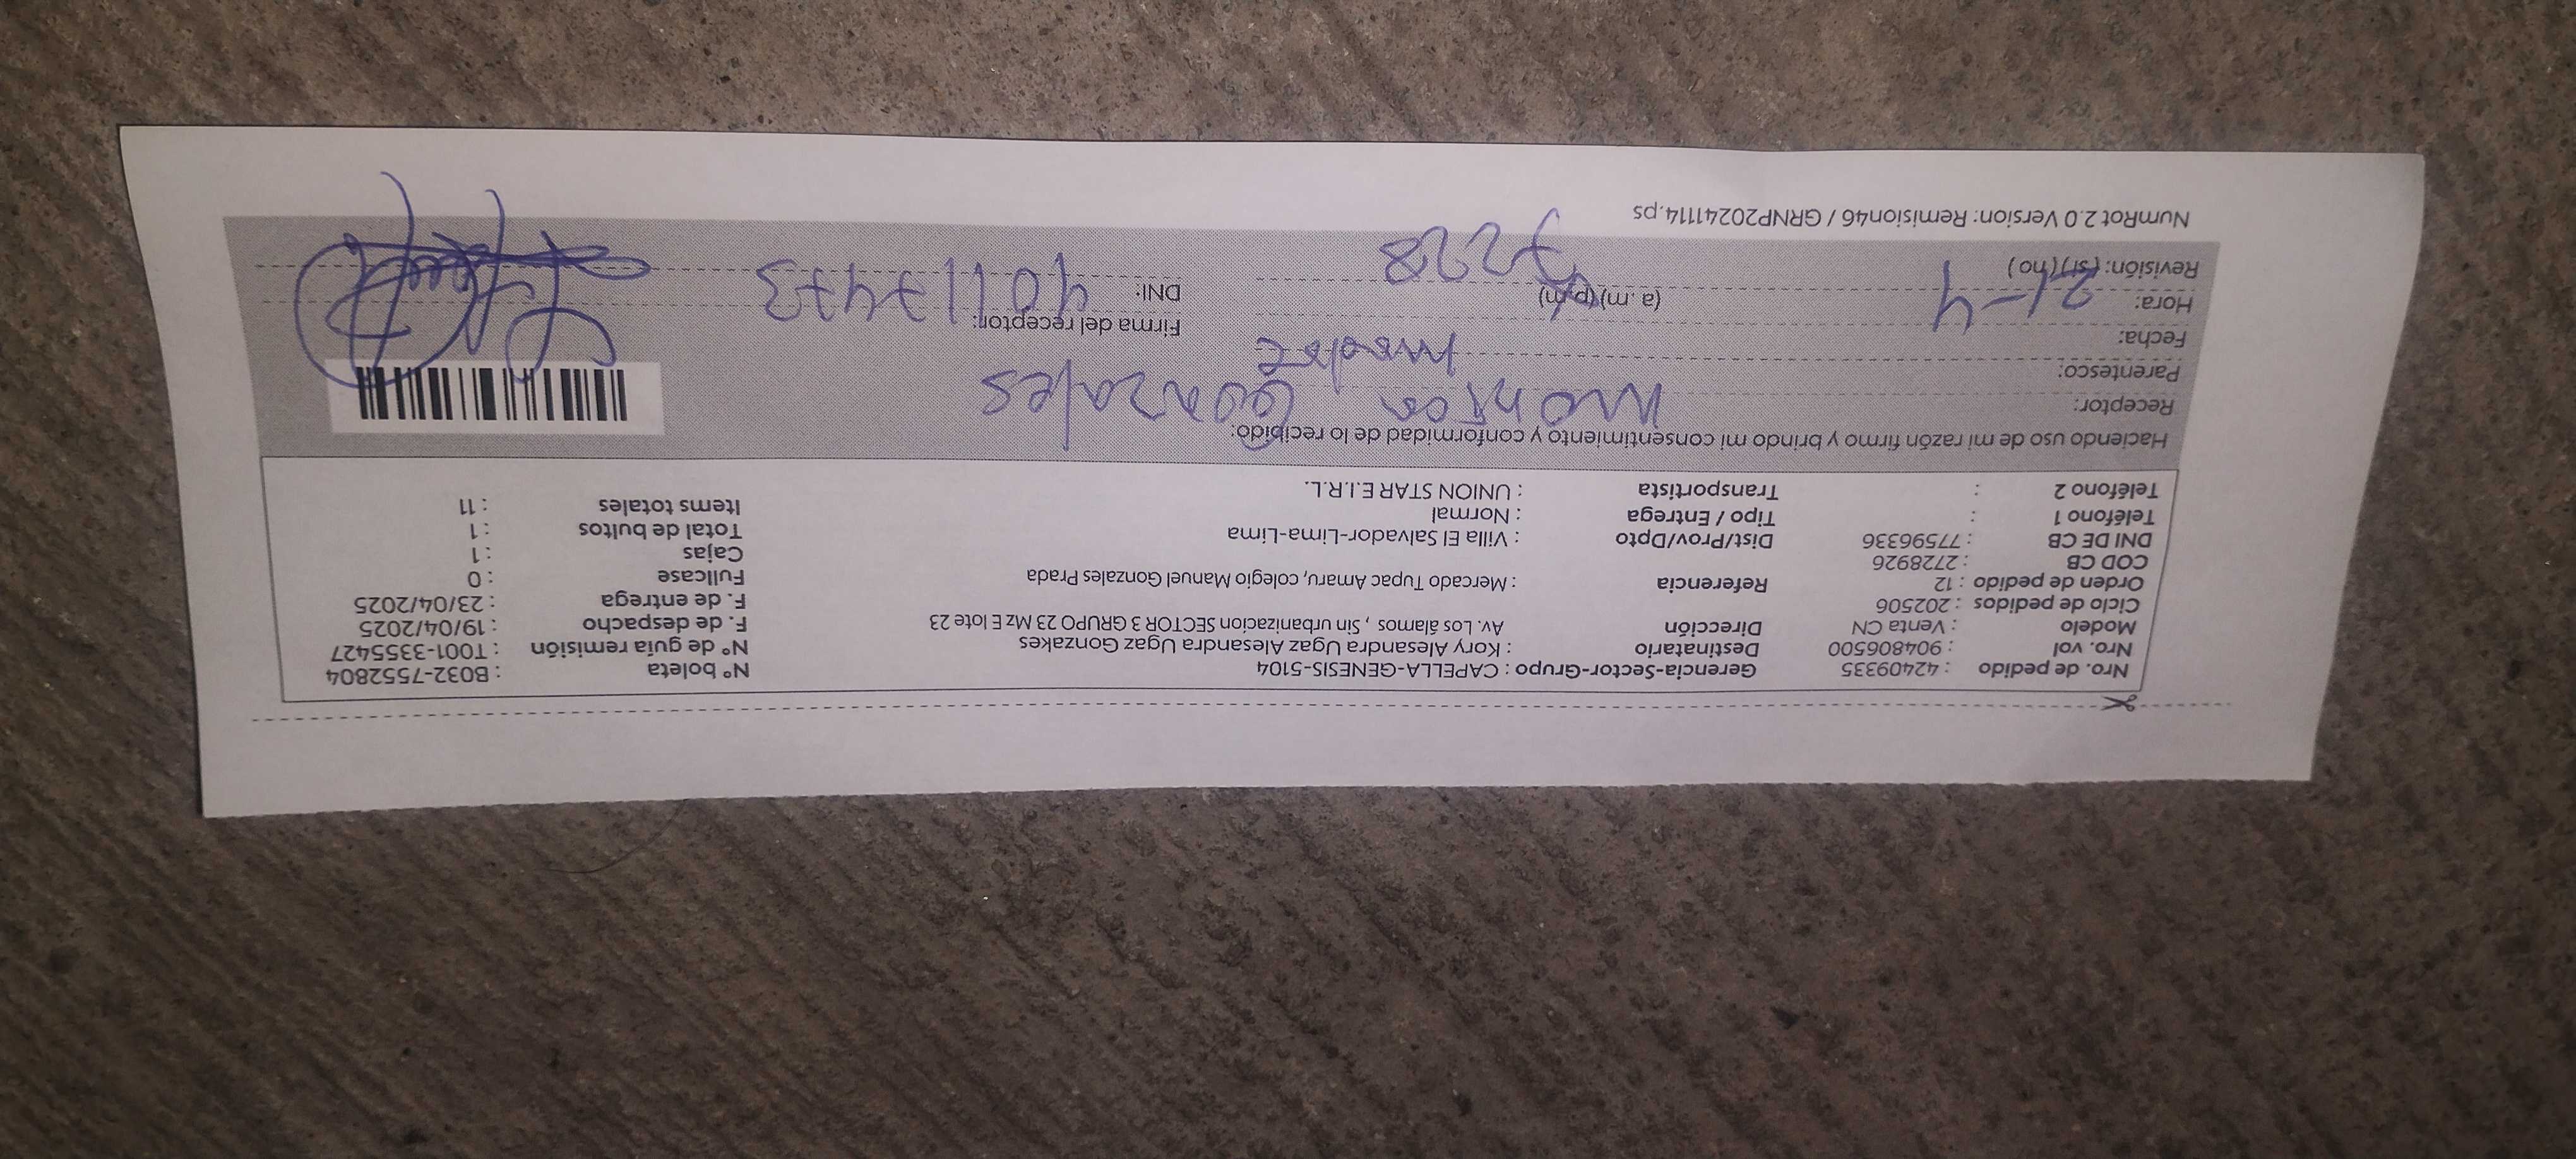 Nro. de pedido : 42409335 Gerencia-Sector-Grupo : CAPELLA-GENESIS-5104 N° boleta : B032-7552804
Nro. vol : 904806500 Destinatario : Kory Alesandra Ugaz Alesandra Ugaz Gonzakes N° de guía remisión : T001-3355427
Modelo : Venta CN Dirección Av. Los álamos , Sin urbanizacion SECTOR 3 GRUPO 23 Mz E lote 23 F. de despacho : 19/04/2025
Ciclo de pedidos : 202506 F. de entrega : 23/04/2025
Orden de pedido : 12 Referencia : Mercado Tupac Amaru, colegio Manuel Gonzales Prada Fullcase : 0
COD CB : 2728926 Cajas : 1
DNI DE CB : 77596336 Dist/Prov/Dpto : Villa El Salvador-Lima-Lima Total de bultos : 1
Teléfono 1 : Tipo / Entrega : Normal Items totales : 11
Teléfono 2 : Transportista : UNION STAR E.I.R.L.
Haciendo uso de mi razón firmo y brindo mi consentimiento y conformidad de lo recibido:
Receptor: Monica Gonzales
Parentesco: madre
Fecha: Firma del receptor:
Hora: 21-4 (a. m) (p.m) DNI: 40117473
Revisión: (si) (no) 7228
NumRot 2.0 Version: Remision46 / GRNP20241114.ps